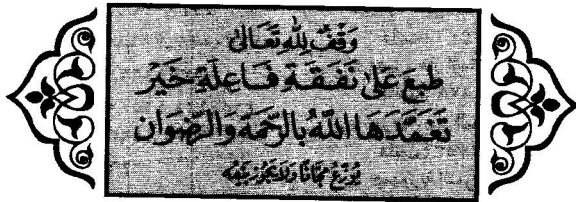 وَقْفٌ لِلّهِ تَعَالىٰ
طُبِعَ عَلىٰ نَفَقَةِ فَاعِلَةِ خَيْرٍ
تَغَمَّدَهَا اللّهُ بِالرَّحْمَةِ وَالرِّضْوَانِ
يُوَزَّعُ مَجَّانًا وَلَا يَجُوزُ بَيْعُهُ